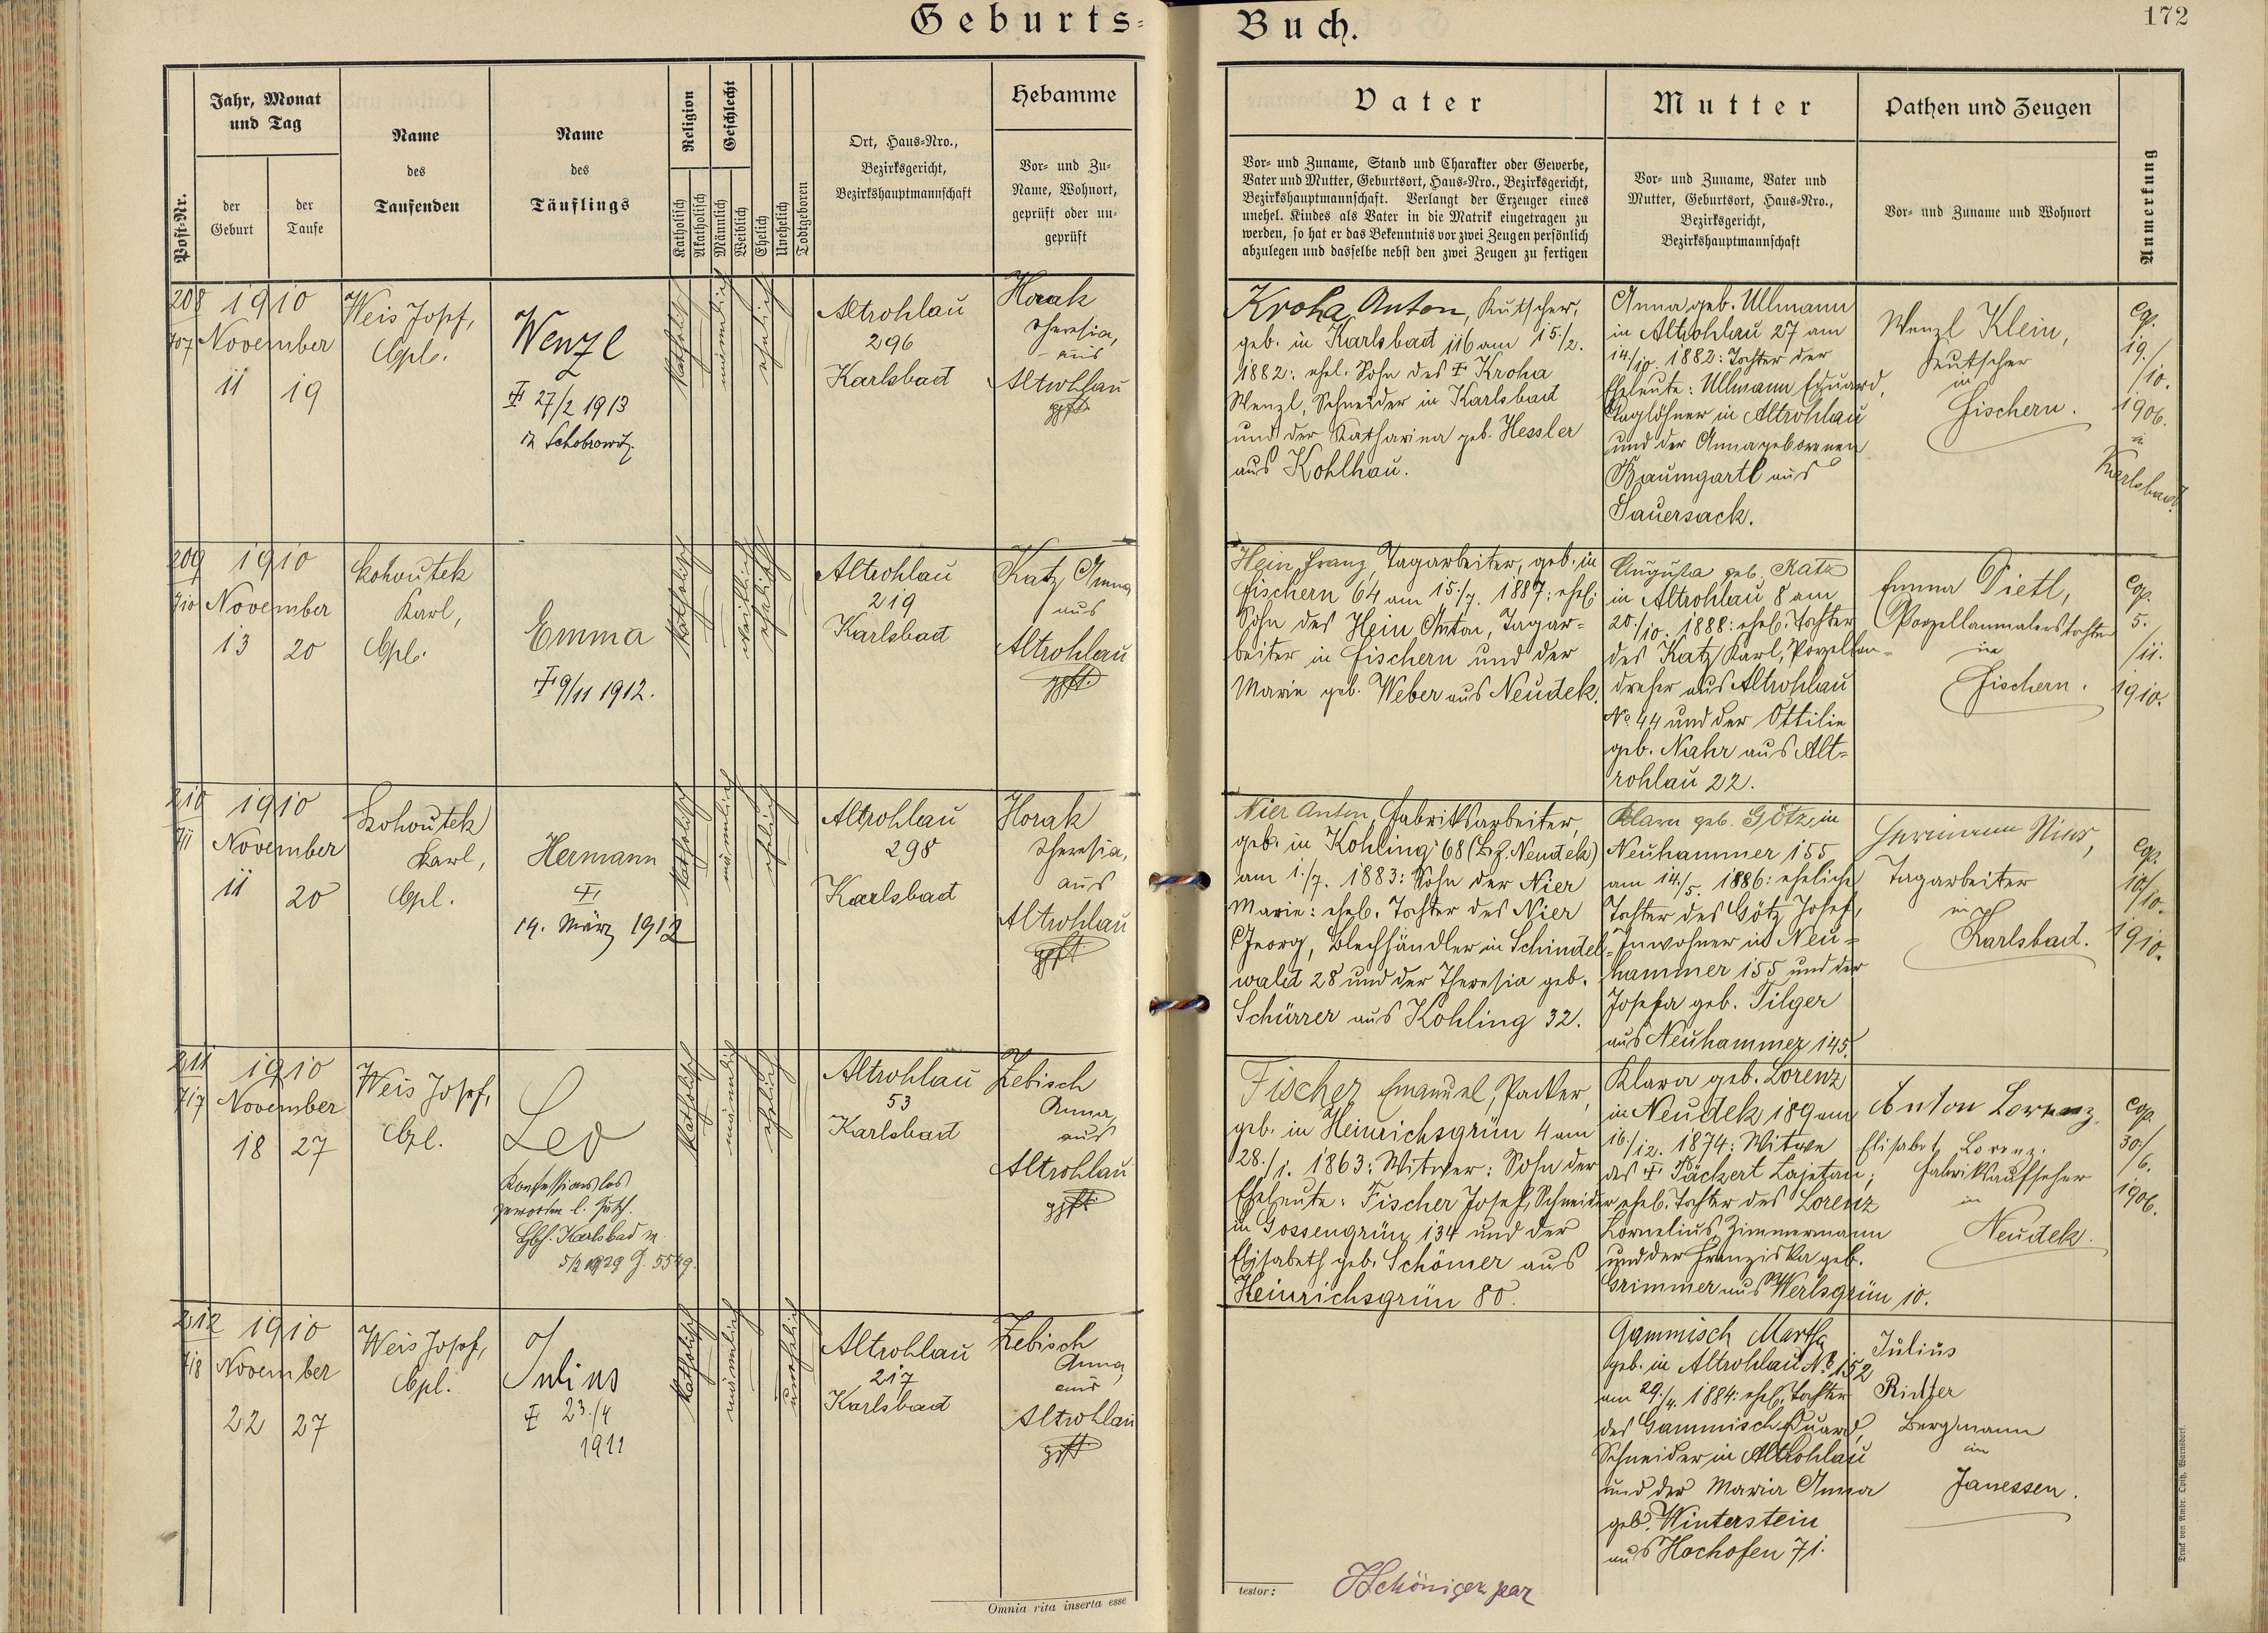 Geburts-
Buch.
172
Post-Nr.
Jahr, Monat
und Tag
der
Geburt
der
Taufe
Name
des
Taufenden
Name
des
Täuflings
Religion
Katholisch
Akatholisch
Geschlecht
Männlich
Weiblich
Ehelich
Unehelich
Todtgeboren
Ort, Haus-Nro.,
Bezirksgericht,
Bezirkshauptmannschaft
Hebamme
Vor- und Zu-
Name, Wohnort,
geprüft oder un-
geprüft
Vater
Vor- und Zuname, Stand und Charakter oder Gewerbe,
Vater und Mutter, Geburtsort, Haus-Nro., Bezirksgericht,
Bezirkshauptmannschaft. Verlangt der Erzeuger eines
unehel. Kindes als Vater in die Matrik eingetragen zu
werden, so hat er das Bekenntnis vor zwei Zeugen persönlich
abzulegen und dasselbe nebst den zwei Zeugen zu fertigen
Mutter
Vor- und Zuname, Vater und
Mutter, Geburtsort, Haus-Nro.,
Bezirksgericht,
Bezirkshauptmannschaft
Pathen und Zeugen
Vor- und Zuname und Wohnort
Anmerkung
208
707
1910
November
11
19
Weis Josef,
Cpl.
Wenzl
27/2 1913
katholisch
männlich
ehelich
Altrohlau
296
Karlsbad
Horak
Theresia,
aus
Altrohlau
gpft.
Kroha Anton, Kutscher,
geb. in Karlsbad 116 am 15./2.
1882: ehel. Sohn des ‡ Kroha
Wenzl, Schneider in Karlsbad
und der Katharina geb. Hessler
aus Kohlhau.
Anna geb. Ullmann
in Altrohlau 27 am
14./10. 1882: Tochter der
Eheleute: Ullmann Eduard,
Taglöhner in Altrohlau
und der Anna geborenen
Baumgartl aus
Sauersack.
Wenzl Klein,
Kutscher
in
Fischern.
cop.
19./
/10.
1906.
in
Karlsbad.
209
710
1910
November
13
20
Kohoutek
Karl,
Cpl.
Emma
‡ 9/11 1912.
katholisch
weiblich
ehelich
Altrohlau
219
Karlsbad
Katz Anna
aus
Altrohlau
gpft.
Hein Franz, Tagarbeiter, geb. in
Fischern 64 am 15./7. 1887: ehel.
Sohn des Hein Anton, Tagar-
beiter in Fischern und der
Marie geb. Weber aus Neudek.
Augusta geb. Katz
in Altrohlau 8 am
20./10. 1888: ehel. Tochter
des Katz Karl, Porzellan-
dreher aus Altrohlau
No 44 und der Ottilie
geb. Nahr aus Alt-
rohlau 22.
Emma Dietl,
Porzellanmalerstochter
in
Fischern.
cop.
5.
/11.
1910.
210
711
1910
November
11
20
Kohoutek
Karl,
Cpl.
Hermann
‡
14. März 1912
katholisch
männlich
ehelich
Altrohlau
298
Karlsbad
Horak
Theresia,
aus
Altrohlau
gpft
Nier Anton, Fabriksarbeiter,
geb. in Kohling 68 (Bz. Neudek)
am 1./7. 1883: Sohn der Nier
Marie: ehel. Tochter des Nier
Georg, Blechhändler in Schindel-
wald 28 und der Theresia geb.
Schürrer aus Kohling 32.
Klara geb. Götz, in
Neuhammer 155
am 14./5. 1886: eheliche
Tochter des Götz Josef,
Inwohner in Neu-
hammer 155 und der
Josefa geb. Tilger
aus Neuhammer 145.
Tagarbeiter
in
Karlsbad.
cop.
10/
/10.
1910.
211
717
1910
November
18
27
Weis Josef,
Cpl.
Leo
Konfessionslos
geworden l.
Karlsbad
5/2 1929 Z. 5549.
katholisch
männlich
ehelich
Altrohlau
53
Karlsbad
Zebisch
Anna,
aus
Altrohlau
gpft.
Fischer Emanuel, Packer,
geb. in Heinrichsgrün 4 am
28./1. 1863: Witwer: Sohn der
Eheleute: Fischer Josef, Schneider
in Gossengrün 134 und der
Elisabeth geb. Schömer aus
Heinrichsgrün 80.
Klara geb. Lorenz
in Neudek 189 am
16./12. 1874: Witwe
des ‡ Päckert Cajetan;
ehel. Tochter des Lorenz
Cornelius Zimmermann
und der Franziska geb.
Grimmer aus Werlsgrün 10.
Anton Lorenz,
Elisabet Lorenz.
Fabriksaufseher
in
Neudek.
cop.
30./
/6.
1906.
212
718
1910
November
22
27
Weis Josef,
Cpl.
Julius
‡ 23./4
1911
katholisch
männlich
unehelich
Altrohlau
217
Karlsbad
Zebisch
Anna,
aus
Altrohlau
gpft.
Gammisch Martha
geb. in Altrohlau No 152
am 29./4. 1884: ehel. Tochter
des Gammisch Eduard,
Schneider in Altrohlau
und der Maria Anna
geb. Winterstein
aus Hochofen 71.
Julius
Richter
Bergmann
in
Janessen.
Omnia rita inserta esse
testor:
Druck von Ambr. Opitz, Warnsdorf.